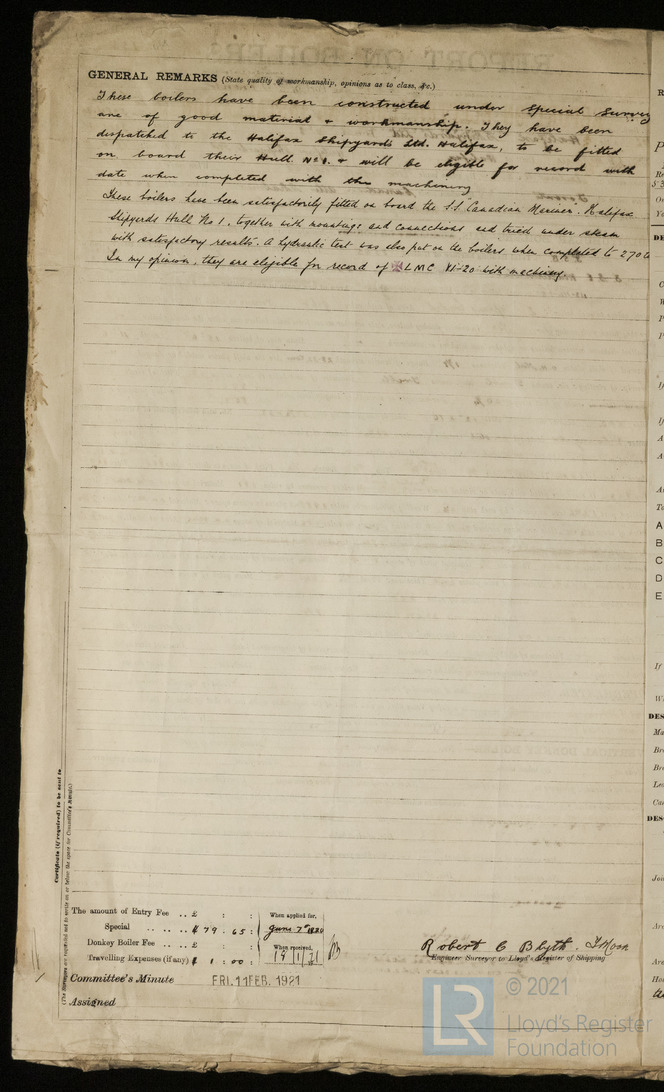 GENERAL REMARKS (State quality of workmanship, opinions as to class, &c.)
These boilers have been constructed under Special Survey
are of good material & workmanship. They have been
despatched to the Halifax Shipyards Ltd. Halifax, to be fitted
on board their Hull No 1. & will be eligible for record with
date when completed with the machinery
These boilers have been satisfactorily fitted on board the S.S. Canadian Mariner. Halifax
Shipyards Hull No 1, together with mountings and connections and tried under steam
with satisfactory results. A hydraulic test was also put on the boilers when completed to 270
In my opinion, they are eligible for record of LMC 11-20 with machinery.
Certificate (if required) to be sent to
(The Surveyors are requested not to write on or below the space for Committee's Minute.)
The amount of Entry Fee .. £ : :
Special .. .. $ 79 . 65 :
Donkey Boiler Fee .. .. £ : :
Travelling Expenses (if any) $ 1 : 00 :
When applied for,
June 7th 1920
When received,
19 | 1 | 21
Robert C Blyth.
Engineer Surveyor to Lloyd's Register of Shipping
Committee's Minute FRI. 11 FEB. 1921
Assigned
A
B
C
D
E
If
DES
DES
LR
© 2021
Lloyd's Register
Foundation